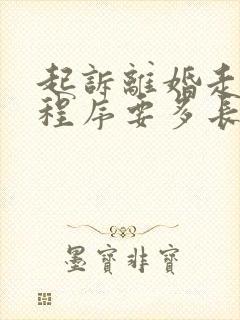 起訴離婚走
程序要多長
墨寶非寶